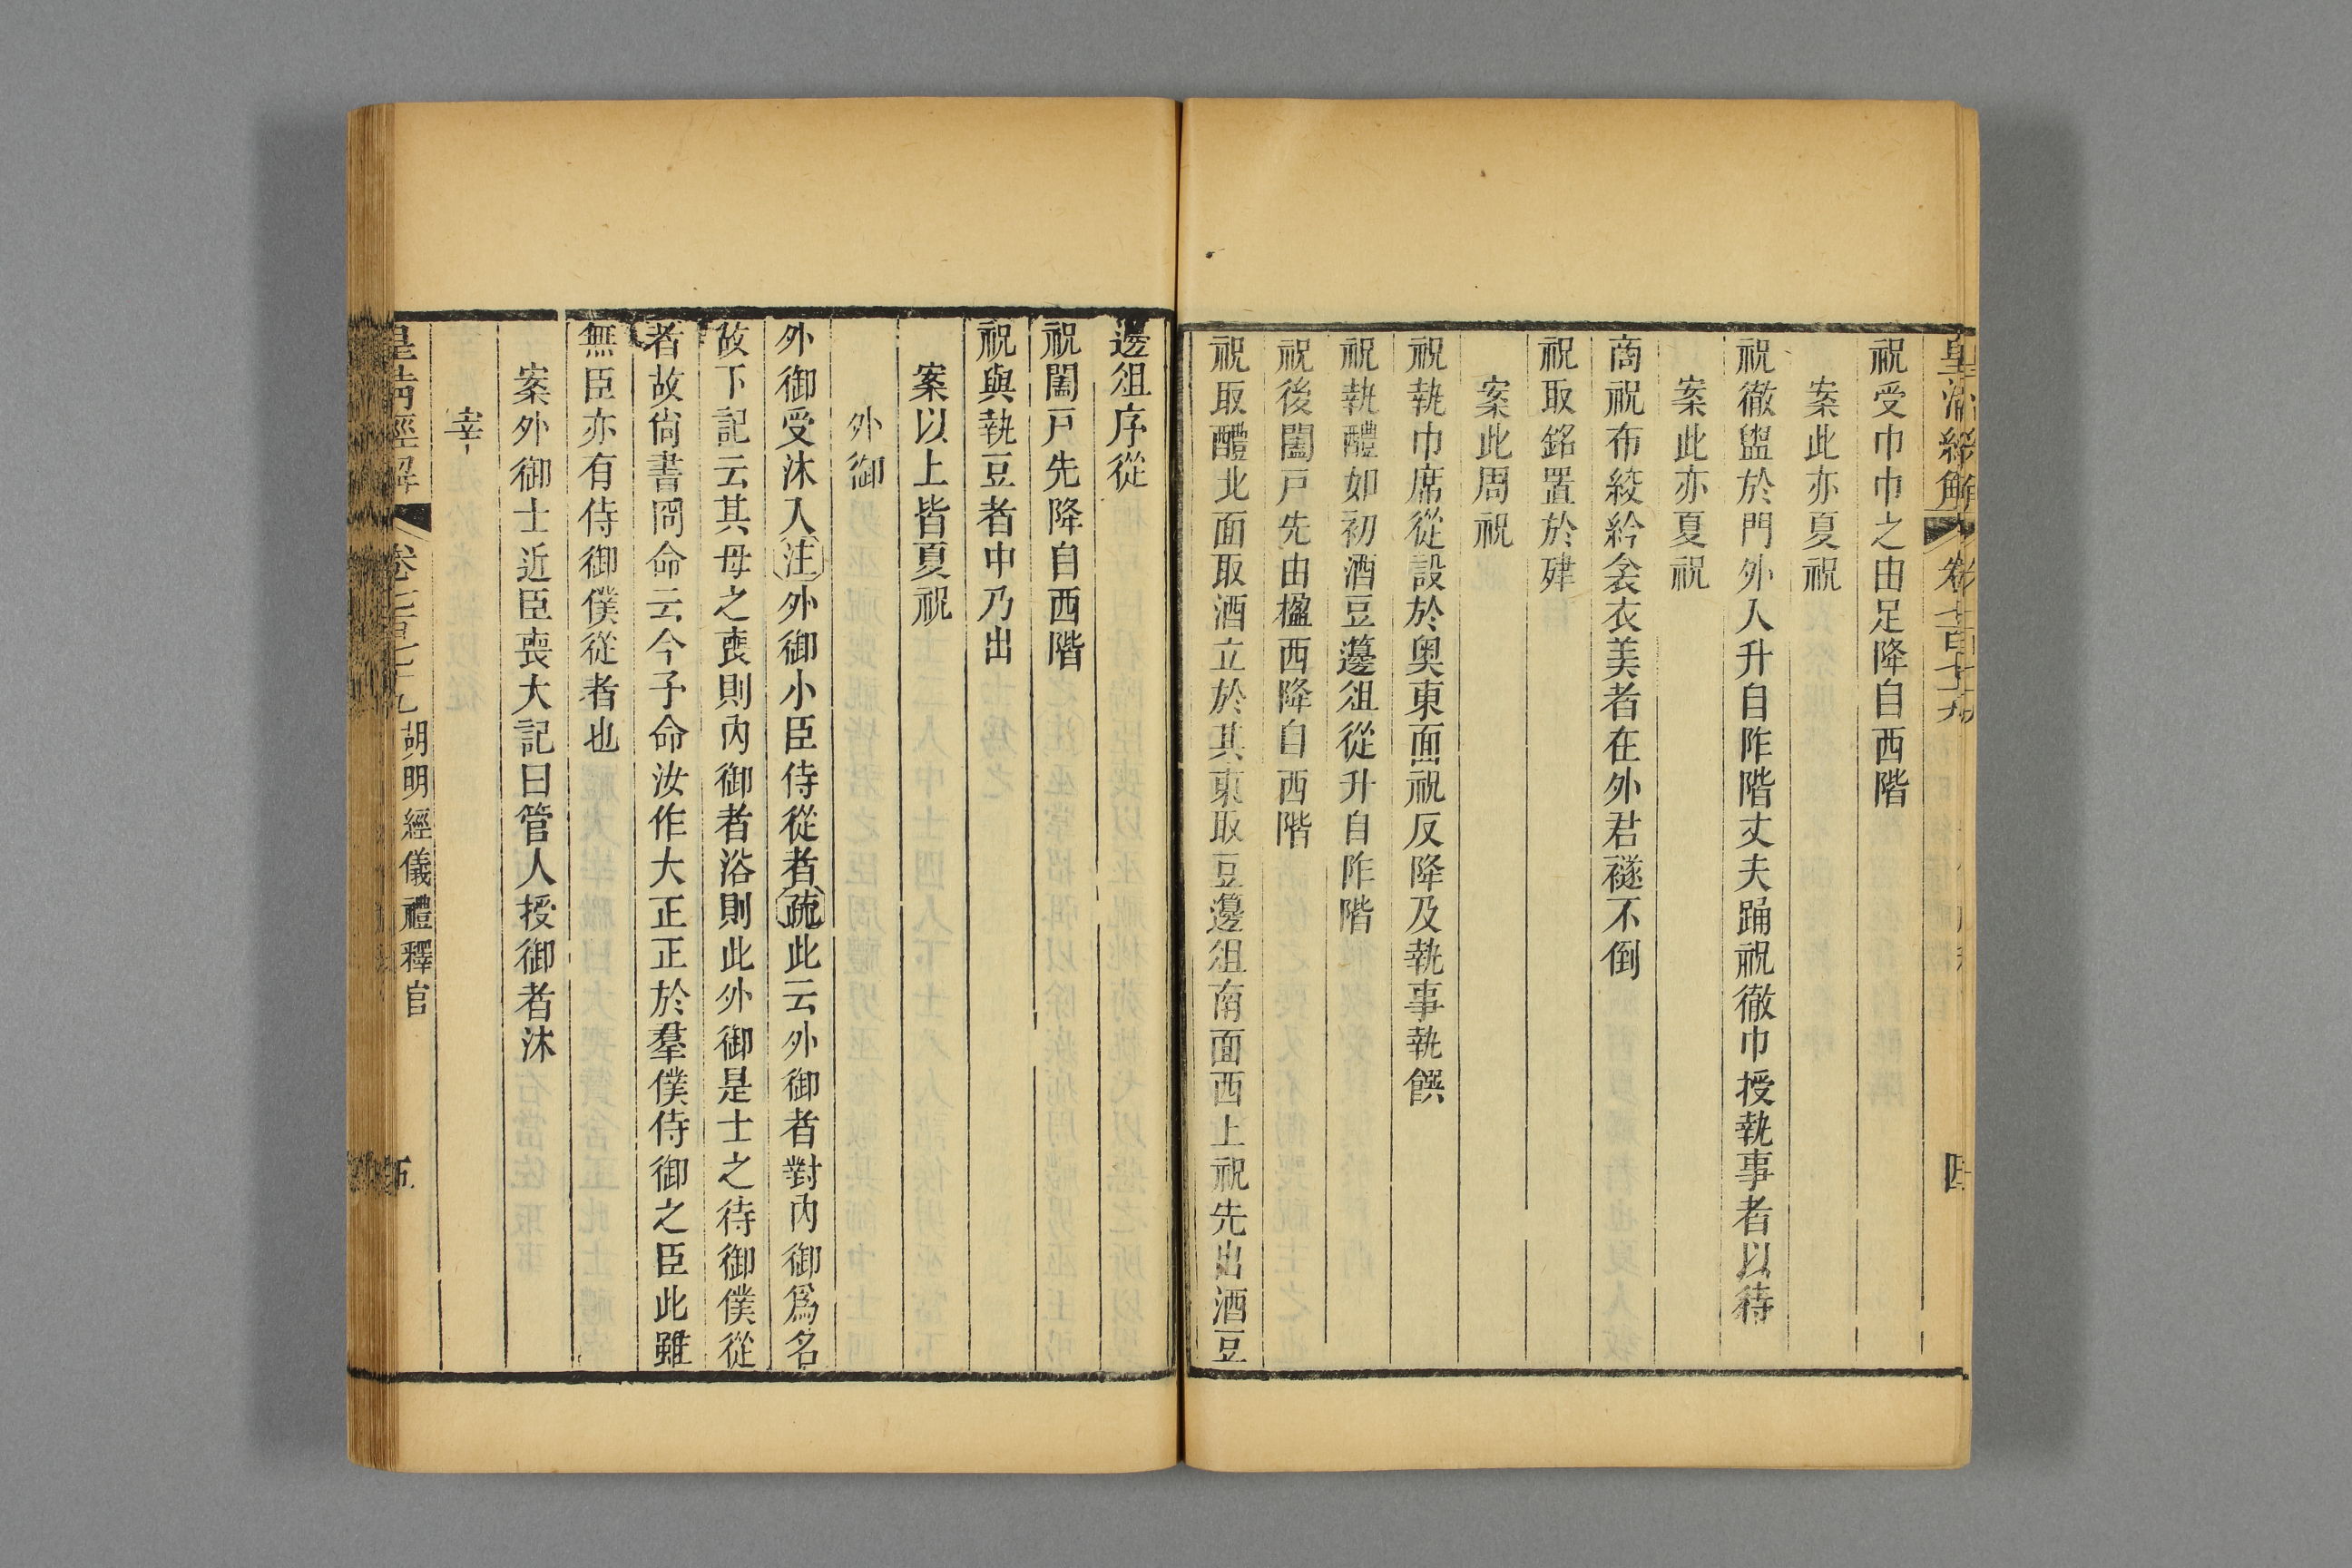 皇淸經解 卷七百七十九 四
祝受巾巾之由足降自西階
案此亦夏祝
祝徹盥於門外入升自阼階丈夫踊祝徹巾授執事者以待
案此亦夏祝
商祝布絞紟衾衣美者在外君襚不倒
祝取銘置於肂
案此周祝
祝執巾席從設於奥東面祝反降及執事執饌
祝執醴如初酒豆籩俎從升自阼階
祝後闔戸先由楹西降自西階
祝取醴北面取酒立於其東取豆籩俎南面西上祝先出酒豆
籩俎序從
祝闔戸先降自西階
祝與執豆者巾乃出
案以上皆夏祝
外御
外御受沐入注外御小臣侍從者疏此云外御者對內御爲名
故下記云其母之喪則內御者浴則此外御是士之待御僕從
者故尙書冏命云今予命汝作大正正於羣僕侍御之臣此雖
無臣亦有侍御僕從者也
案外御士近臣喪大記曰管人授御者沐
宰
皇淸經解 卷七百七十九 胡明經儀禮釋官 五